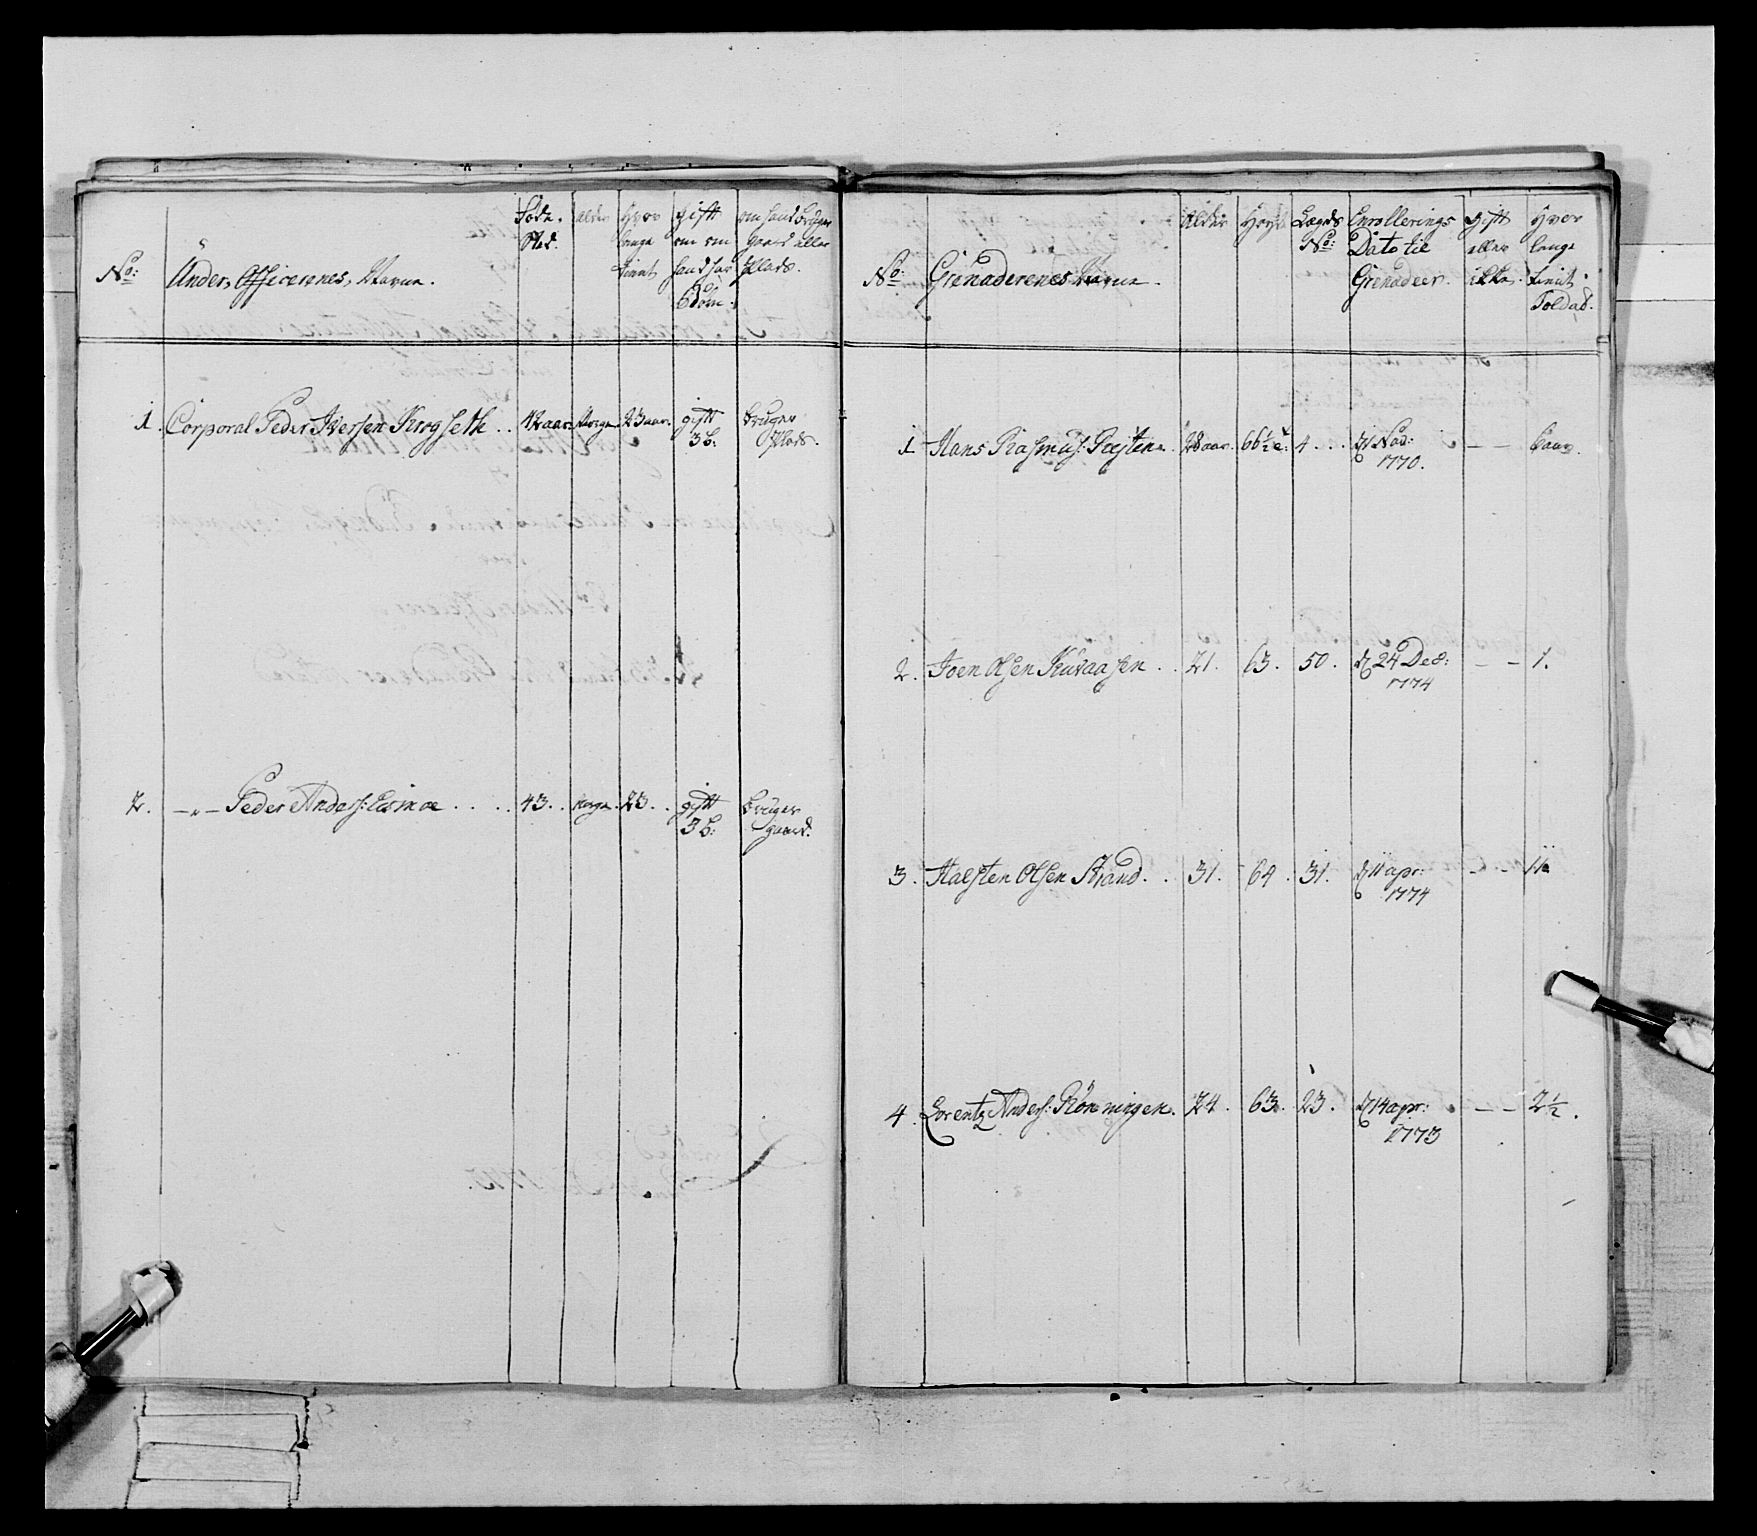 No: Under Officerenes Navne. Føde Sted. alder hvor lenge tient gift om om hand har børn. om hand bruger gaard eller Plads.
1. Corporal Peder Iversen Krogseth .. 42 aar. Norge 23 aar. gift 3 b: bruger Plads.
2. — „ — Peder Anders: Eesmoe .... 43. Norge. 23. gift 3 b: bruger gaard.
No: Grenaderenes Navne. Alder Høyde Lægds No: Enrollerings Dato til Grenadeer. gift eller ikke. Hver lenge tient Soldat.
1 Hans Rasmus: 28 aar. 66½ 4... Nov: 1770. — — 6 aar.
2. Joen Olsen .. 21. 63. 50. d 24 Dec: 1774 — — 1.
3. Halsten Olsen Strand .. 31. 64. 31. d 11 apr: 1774 — — 11.
4. Lorentz Anders: Rønningen. 24. 63. 23. d 14 apr: 1773 — — 2½.